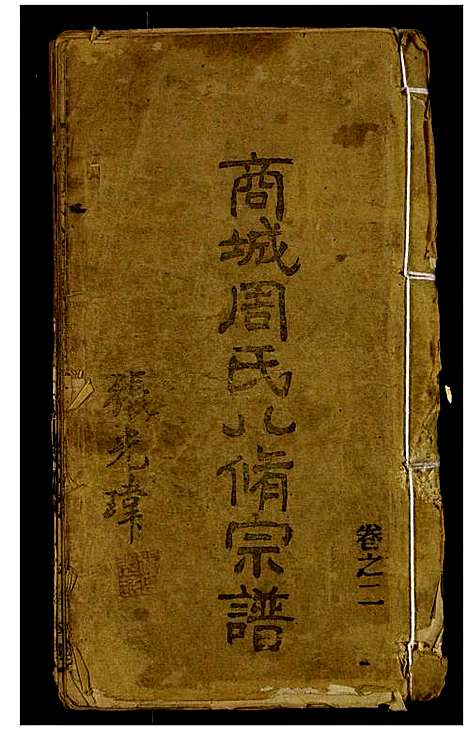 卷之二
商城周氏八脩宗譜
張光瑋